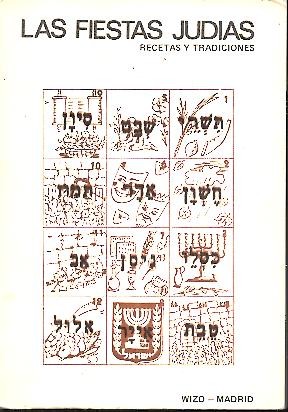 LAS FIESTAS JUDIAS
RECETAS Y TRADICIONES
1
תשרי שבט סיון
10
חשון אדר תמוז
כסלו ניסן אב
12
טבת אייר אלול
ישראל
WIZO – MADRID